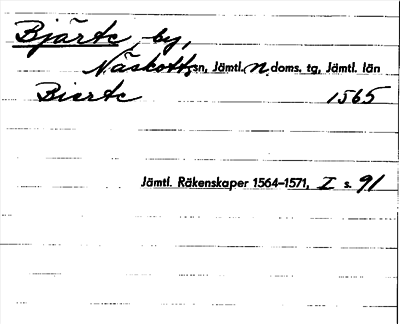 Bjärte, by,
Näskotts sn, Jämtl. n. doms. tg, Jämtl. län
Bierte 1565
Jämtl. Räkenskaper 1564–1571, I s. 91